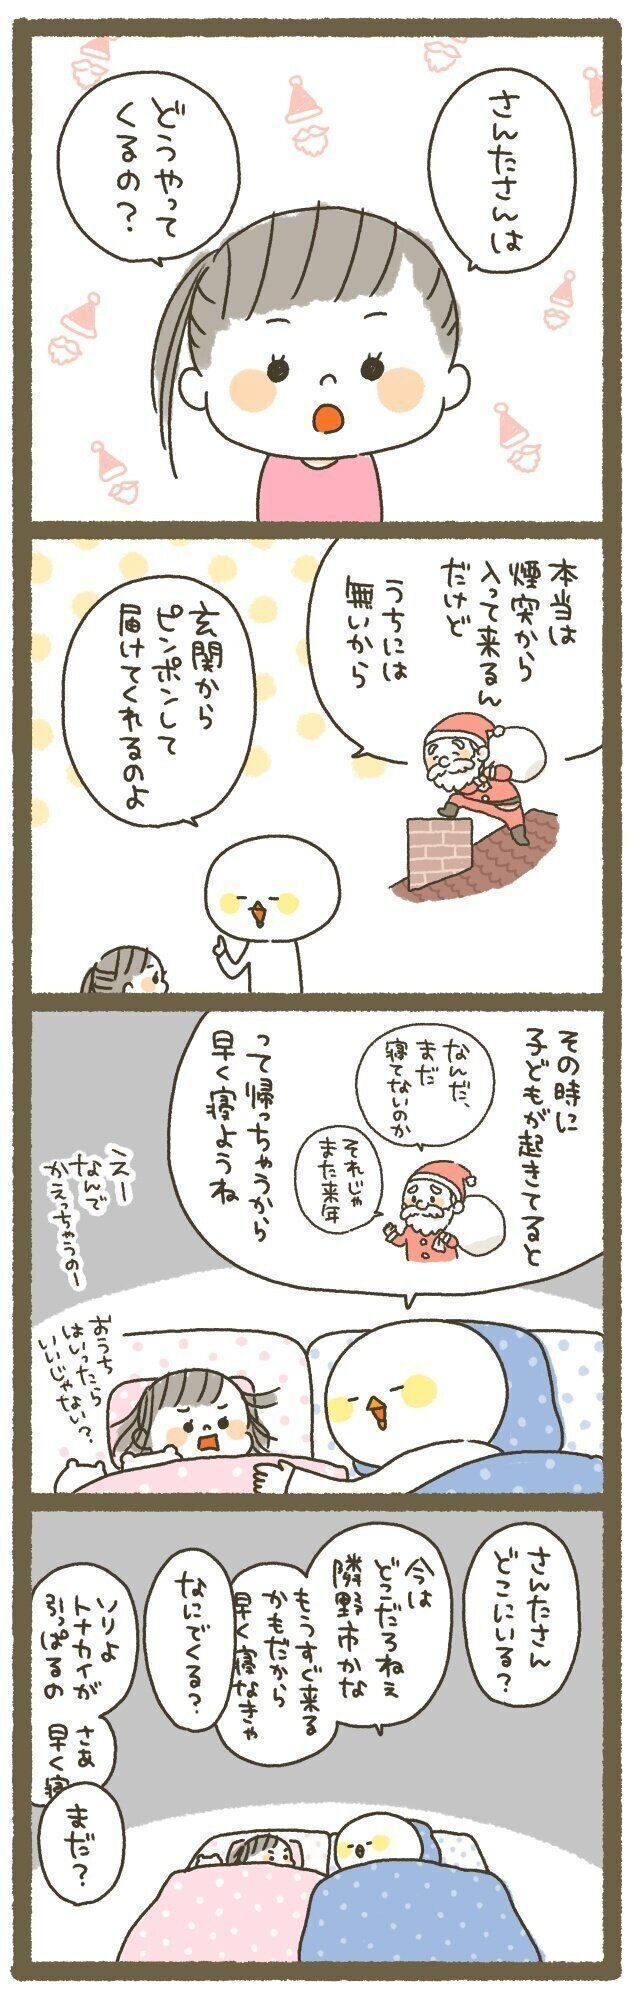 さんたさんは
どうやって
くるの？
本当は
煙突から
入って来るん
だけど
うちには
無いから
玄関から
ピンポンして
届けてくれるのよ
その時に
子どもが起きてると
なんだ、
まだ
寝てないのか
それじゃ
また来年
って帰っちゃうから
早く寝ようね
えー
なんで
かえっちゃうのー
おうち
はいったら
いいじゃない？
さんたさん
どこにいる？
今は
どこだろねぇ
隣野市かな
もうすぐ来る
かもだから
早く寝なきゃ
なにでくる？
ソリよ
トナカイが
引っぱるの
さあ
早く寝
まだ？